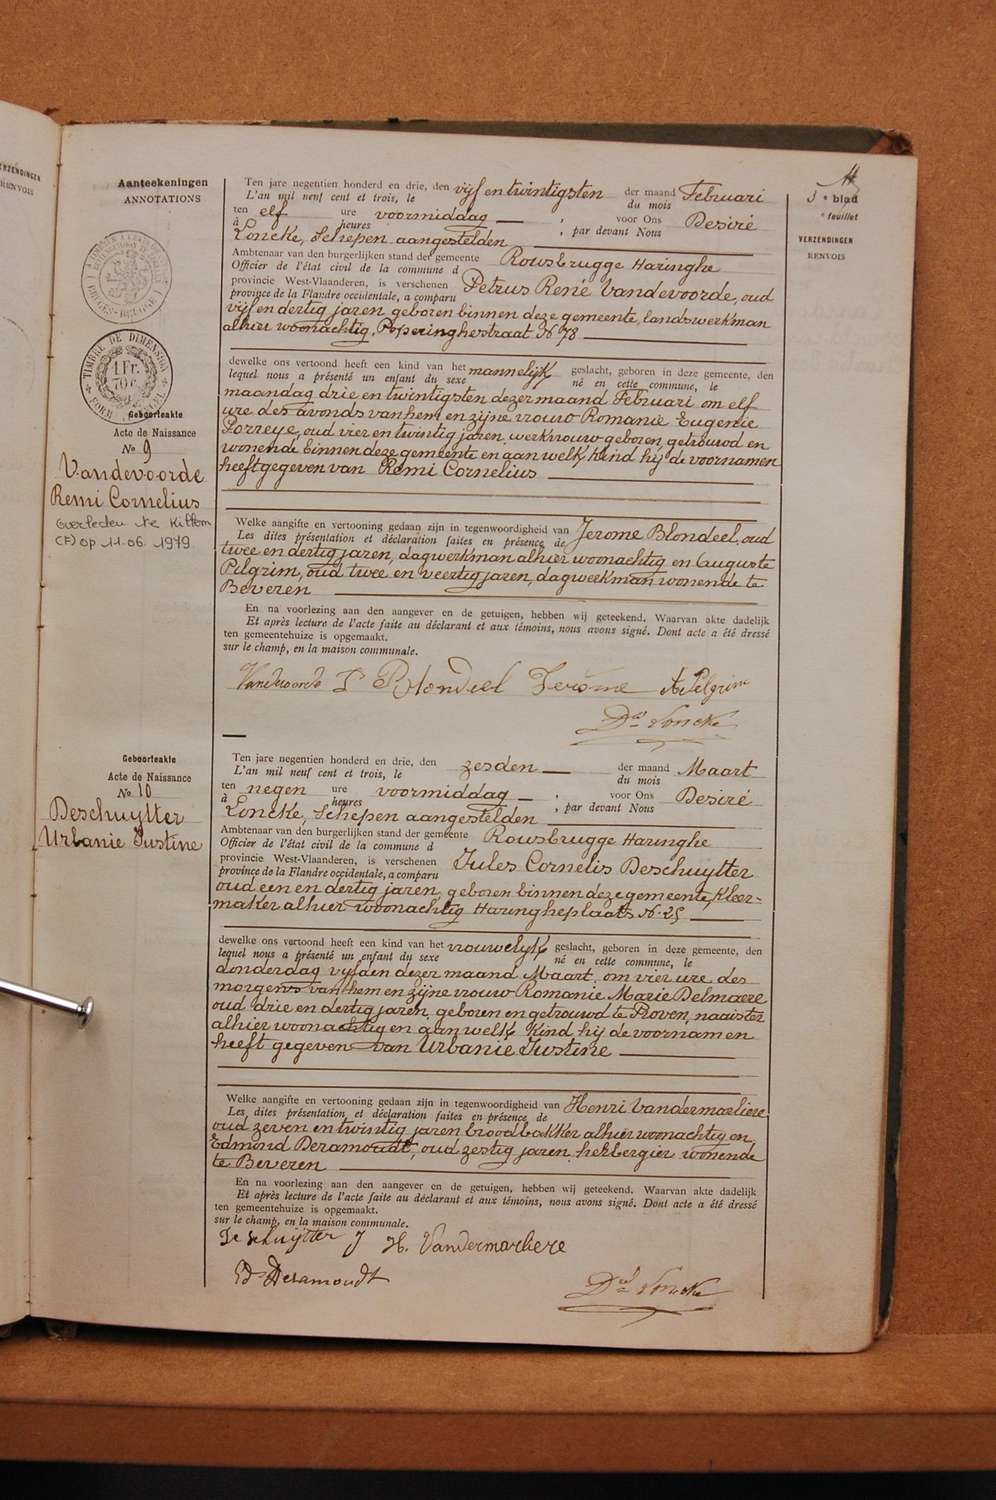 VERZENDINGEN
RENVOIS
Aanteekeningen
ANNOTATIONS
5e blad
e feuillet
VERZENDINGEN
RENVOIS
TIMBRE DE DIMENSION
1 Fr.
70 c.
Geboorteakte
Acte de Naissance
No 9
Vandevoorde
Remi Cornelius
overleden te Killem
(F) op 11.06.1979
Ten jare negentien honderd en drie, den vijf en twintigsten der maand Februari
L'an mil neuf cent et trois, le du mois
ten elf ure voormiddag — , voor Ons Desiré
à heures , par devant Nous
Loncke, Schepen aangestelden
Ambtenaar van den burgerlijken stand der gemeente Rousbrugge Haringhe
Officier de l'état civil de la commune d
provincie West-Vlaanderen, is verschenen Petrus René Vandevoorde, oud
province de la Flandre occidentale, a comparu
vijf en dertig jaren, geboren binnen deze gemeente, landswerkman
alhier woonachtig, Poperinghestraat No 78
dewelke ons vertoond heeft een kind van het mannelijk geslacht, geboren in deze gemeente, den
lequel nous a présenté un enfant du sexe né en cette commune, le
maandag drie en twintigsten dezer maand Februari om elf
ure des avonds van hem en zijne vrouw Romanie Eugenie
Porreye, oud vier en twintig jaren, werkvrouw geboren, getrouwd en
wonende binnen deze gemeente en aan welk kind hij de voornamen
heeft gegeven van Remi Cornelius
Welke aangifte en vertooning gedaan zijn in tegenwoordigheid van Jerome Blondeel, oud
Les dites présentation et déclaration faites en présence de
twee en dertig jaren, dagwerkman alhier woonachtig en Auguste
Pilgrim, oud twee en veertig jaren, dagwerkman, wonende te
Beveren
En na voorlezing aan den aangever en de getuigen, hebben wij geteekend. Waarvan akte dadelijk
Et après lecture de l'acte faite au déclarant et aux témoins, nous avons signé. Dont acte a été dressé
ten gemeentehuize is opgemaakt.
sur le champ, en la maison communale.
Vandevoorde P Blondeel Jerôme A Pelgrim
Dré Loncke
Geboorteakte
Acte de Naissance
No 10
Deschuytter
Urbanie Justine
Ten jare negentien honderd en drie, den zesden — der maand Maart
L'an mil neuf cent et trois, le du mois
ten negen ure voormiddag — , voor Ons Desiré
à heures , par devant Nous
Loncke, Schepen aangestelden
Ambtenaar van den burgerlijken stand der gemeente Rousbrugge Haringhe
Officier de l'état civil de la commune d
provincie West-Vlaanderen, is verschenen Jules Cornelis Deschuytter
province de la Flandre occidentale, a comparu
oud een en dertig jaren, geboren binnen deze gemeente, kleer-
maker alhier woonachtig Haringheplaats No 25
dewelke ons vertoond heeft een kind van het vrouwelijk geslacht, geboren in deze gemeente, den
lequel nous a présenté un enfant du sexe né en cette commune, le
donderdag vijfden dezer maand Maart, om vier ure des
morgens van hem en zijne vrouw Romanie Marie Delmaere
oud drie en dertig jaren, geboren en getrouwd te Proven, naaister
alhier woonachtig en aan welk kind hij de voornamen
heeft gegeven van Urbanie Justine
Welke aangifte en vertooning gedaan zijn in tegenwoordigheid van Henri Vandermarliere
Les dites présentation et déclaration faites en présence de
oud zeven en twintig jaren broodbakker alhier woonachtig en
Edmond Deramoudt, oud zestig jaren, herbergier wonende
te Beveren
En na voorlezing aan den aangever en de getuigen, hebben wij geteekend. Waarvan akte dadelijk
Et après lecture de l'acte faite au déclarant et aux témoins, nous avons signé. Dont acte a été dressé
ten gemeentehuize is opgemaakt.
sur le champ, en la maison communale.
Deschuijtter J H. Vandermarliere
Ed Deramoudt
Dré Loncke